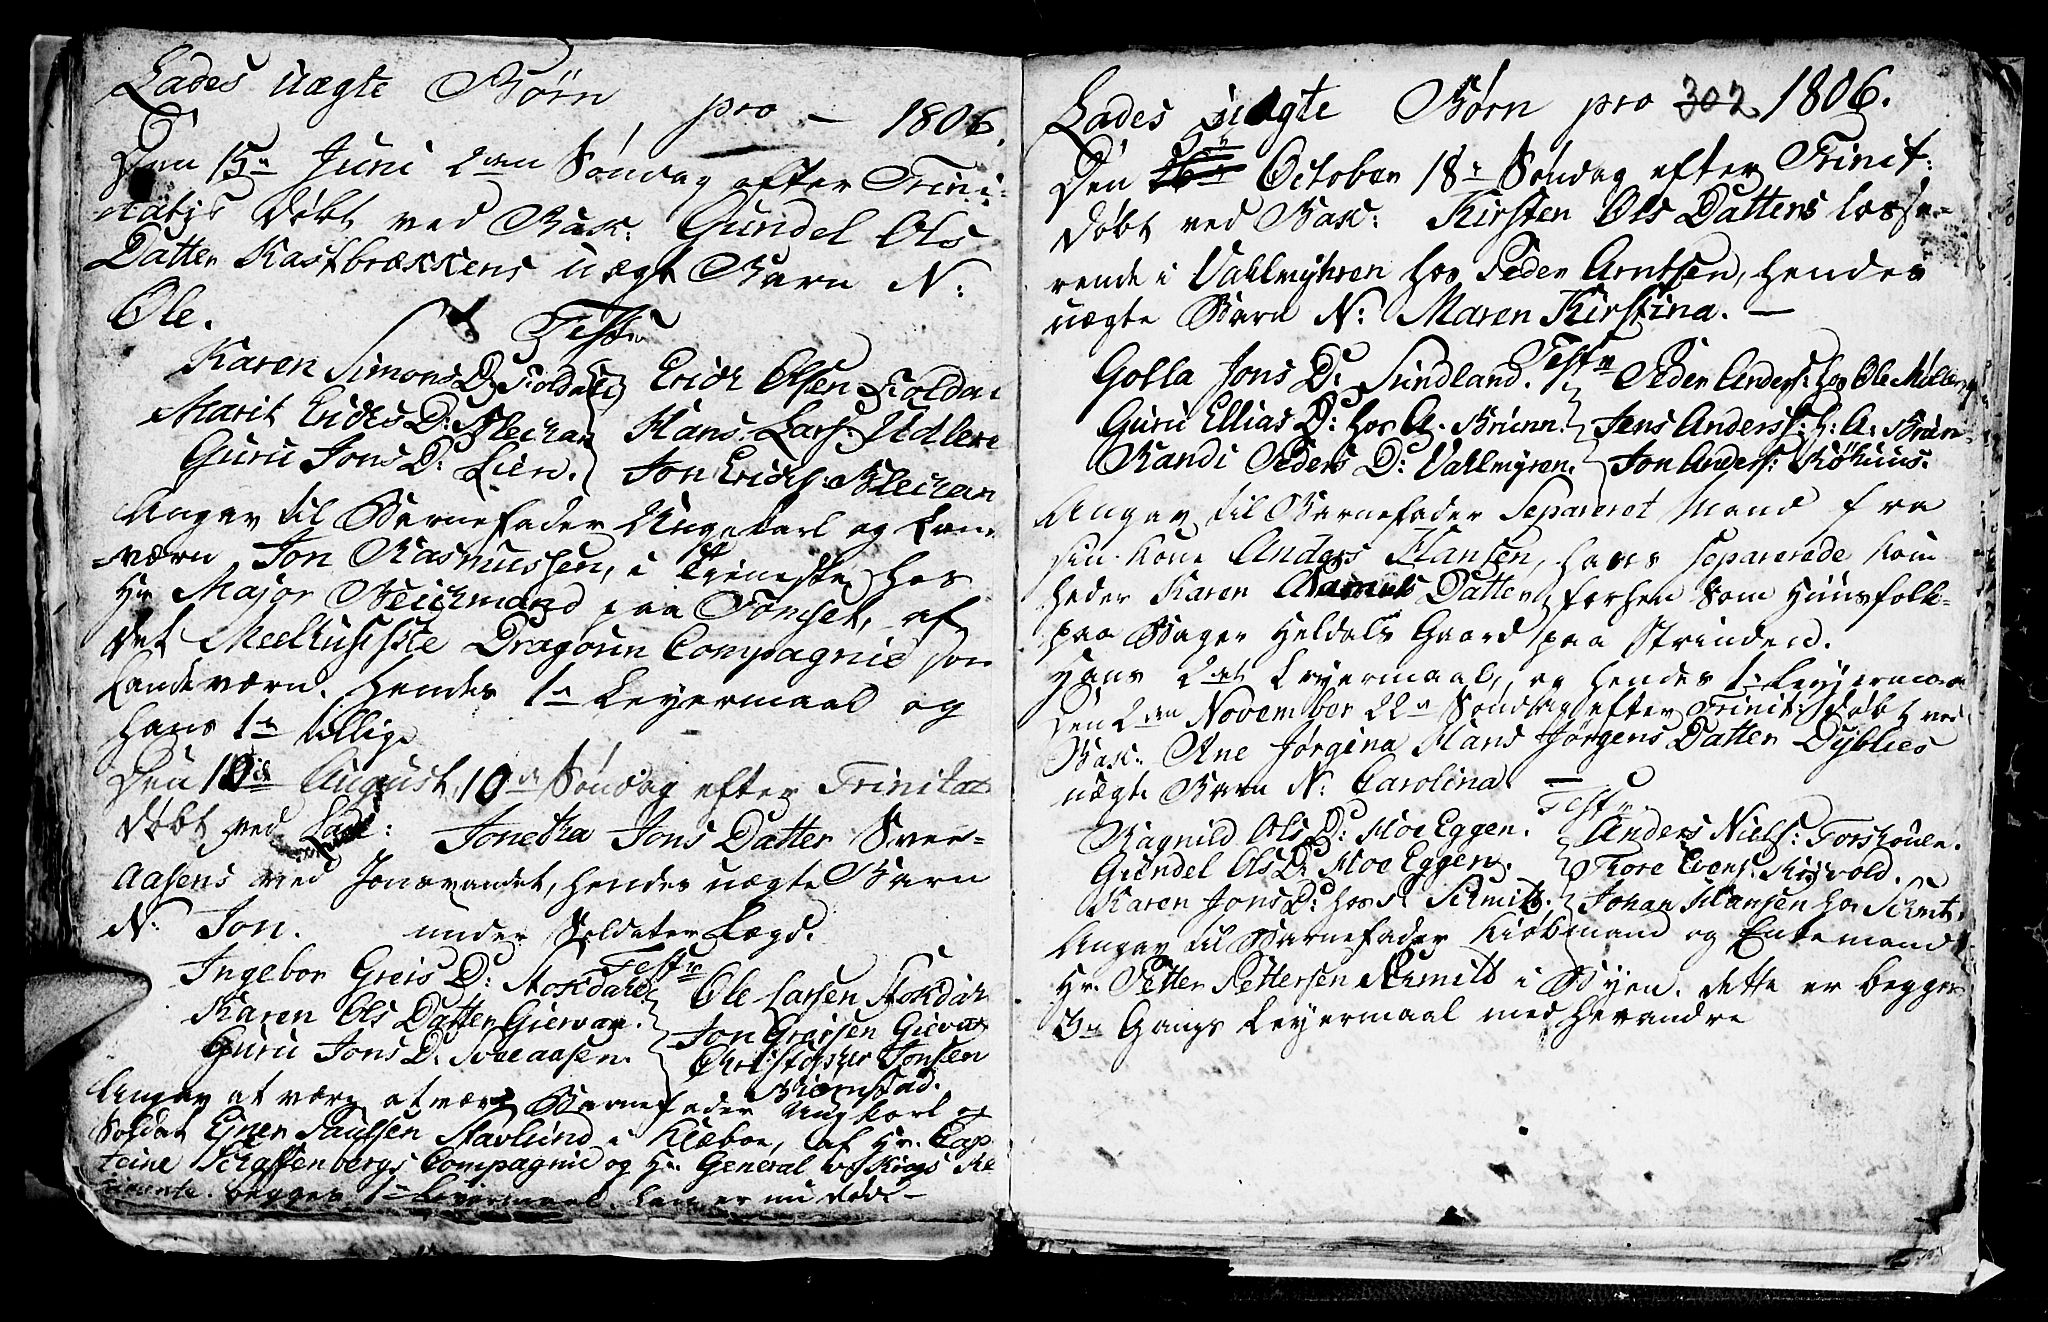 Lades uægte Børn pro – 1806.
Den 15de Juni 2den Søndag efter Trini-
tatis døbt ved Bak: Gundel Ols
Datter Kastbrækkens uægte Barn N:
Ole.
Test
Karen Simons D: Foldal Erich Olsen Foldal
Marit Erichs D: Blechan Hans Lars: Udlere
Guru Jons D: Lien. Jon Erichs: Blechan
Angav til Barnefader Ungekarl og Lan-
-værn Jon Rasmussen, i Tieneste hos
Hr Major Beichmand paa Tønset, af
det Meelhusiske Dragoun Compagnie som
Landeværn. Hendes 1te Leyermaal og
hans 1te tillige
Den 10de August, 10de Søndag efter Trinitat
døbt ved Lade: Jonetha Jons Datter Sver-
aasens ved Jonsvandet, hendes uægte Barn
N: Jon. under Soldater Lægd.
Test
Ingebor Greis D: Stokdahl Ole Larsen Stokdahl
Karen Ols Datter Giervan. Jon Greisen Giervan
Guru Jons D: Sveaasen. Christopher Jonsen
Biørnstad.
Angav at være Barnefader Ungkarl og
Soldat Ejner Paulsen Stavlund i Klæboe, af Hr. Cap-
teine Schaffenbergs Compagnie og Hr General v. Krags Re
gimente. begges 1te Leyermaal. han er nu død. –
Lades uægte Børn pro 302 1806.
Den 5te October 18de Søndag efter Trinit:
døbt ved Bak: Kirsten Ols Datters losse-
rende i Vallmyhren hos Peder Arntsen, hendes
uægte Barn N: Maren Kirstina. –
Test
Golla Jons D: Sundland. Peder Anders: hos Ole Møller
Guru Ellias D: hos A. Bruun. Jens Anders: h: A: Bruun
Randi Peders D: Vallmyren. Jon Anders: Røhuus.
Angav til Barnefader Separeret Mand fra
sin Kone Anders Hansen, hans separerede Kone
heder Karen Datter, forhen som Huusfolk
paa Bager Heldals Gaard paa Strinden.
Hans 2det Leyermaal, og hendes 1te Leyermaal
Den 2den November 22de Søndag efter Trinit: døbt ved
Bak: Ane Jørgina Hans Jørgens Datter Dyblies
uægte Barn N: Carolina –
Test
Ragnild Ols D: Moe Eggen. Anders Niels: Forskoulen.
Gundel Ols D: Moe Eggen. Tore Evens: Risvold.
Karen Jons D: hos Schmitt. Johan Hansen hos Schmit
Angav til Barnefader Kiøbmand og Enkemand
Hr. Petter Pettersen Schmitt i Byen. dette er begges
3de Gangs Leyermaal med hverandre